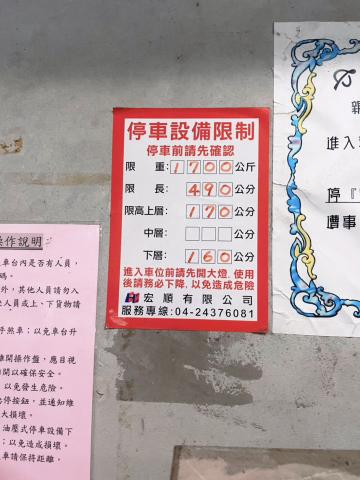 停車設備限制
停車前請先確認
限重:1700公斤
限長:490公分
限高上層:170公分
中層:公分
下層:160公分
進入車位前請先開大燈.使用
後請務必下降.以免造成危險
宏順有限公司
服務專線:04-24376081
操作說明
車台內是否有人員,
碼。
外,其他人員請勿入
人員或上、下貨物請
停煞車;以免車台升
離開操作盤,應目視
以確保安全。
以免發生危險。
停按鈕,並通知維
大損壞。
油壓式停車設備下
;以免造成損壞。
車請保持距離。
親
進入
停『
遭事